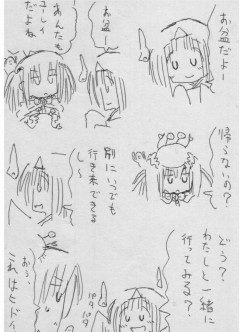 お盆だよー
お盆
あんたも
ユーレイ
だよね
帰らないの?
別にいつでも
行き来できる
し〜
どう?
わたしと一緒に
行ってみる?
パタ
パタ
おぅ、
これはヒドイ